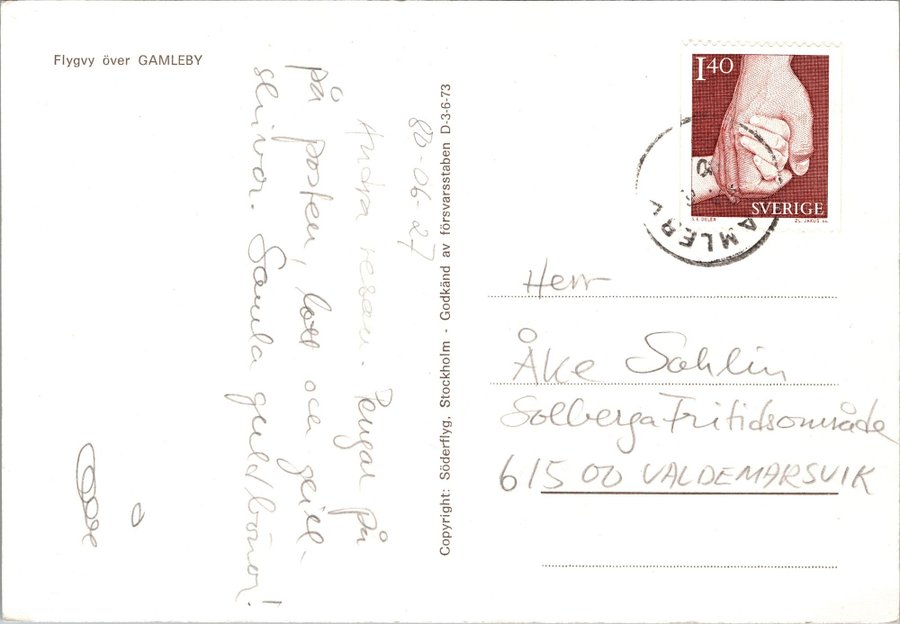 Flygvy över GAMLEBY
80-06-27
Andra resan. Pengar på
på posten, lott och grill-
skivor. Samla guldbönor!
Copyright: Söderflyg, Stockholm - Godkänd av försvarsstaben D-3-6-73
1 40
SVERIGE
GAMLEBY
Herr
Åke Sahlin
Solberga Fritidsområde
615 00 VALDEMARSVIK